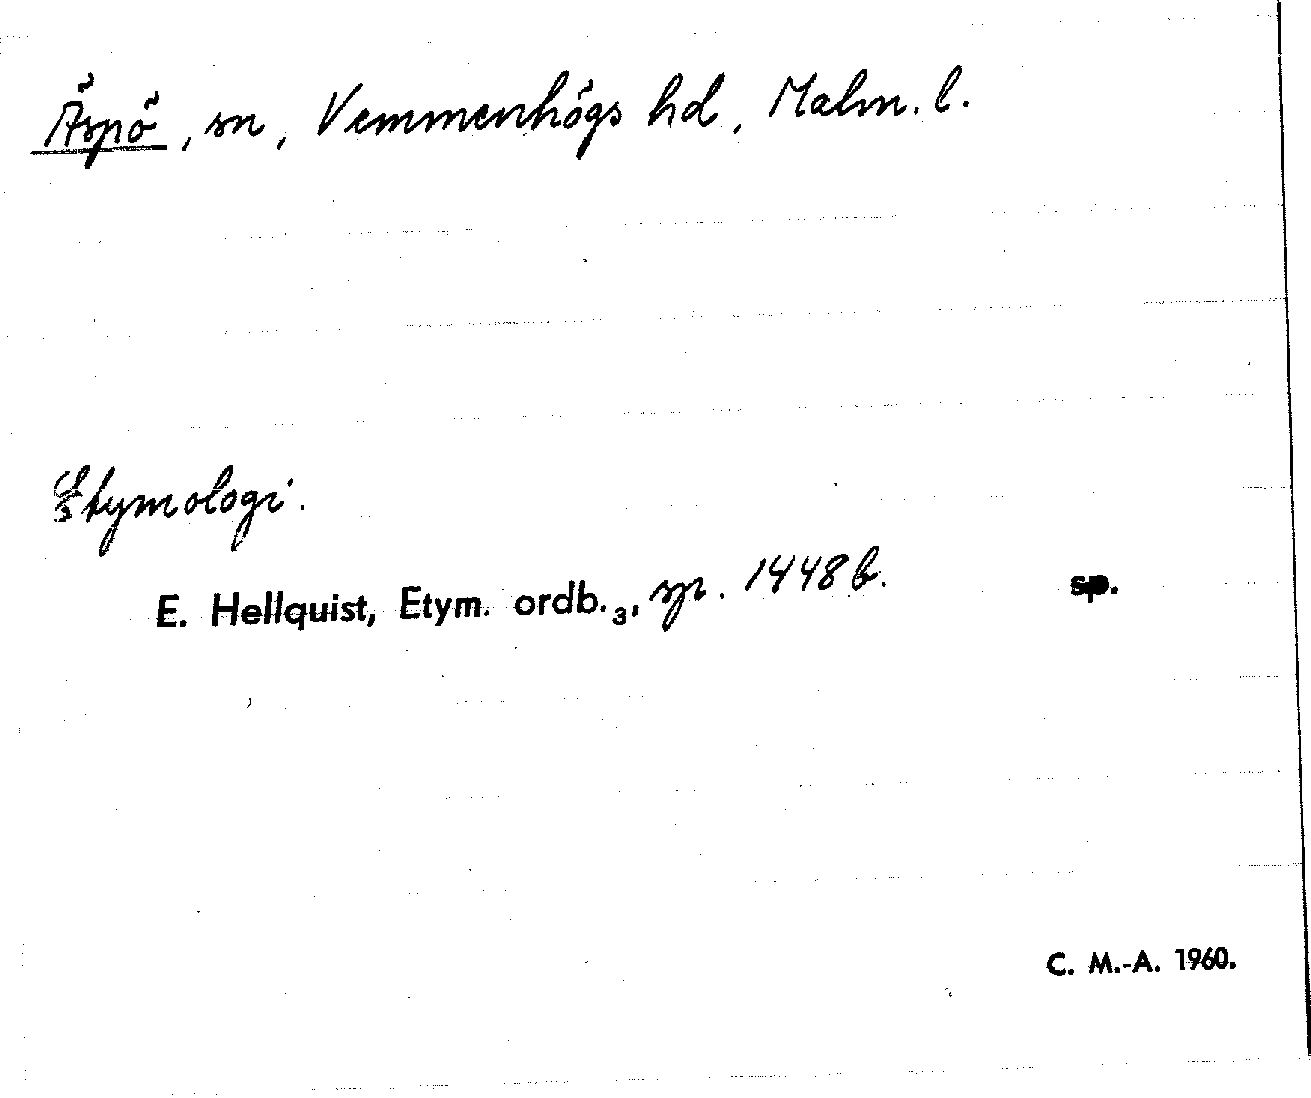 Äspö, sn, Vemmenhögs hd, Malm. l.
Etymologi.
E. Hellquist, Etym. ordb.₃, sp. 1448 b. sp.
C. M.-A. 1960.